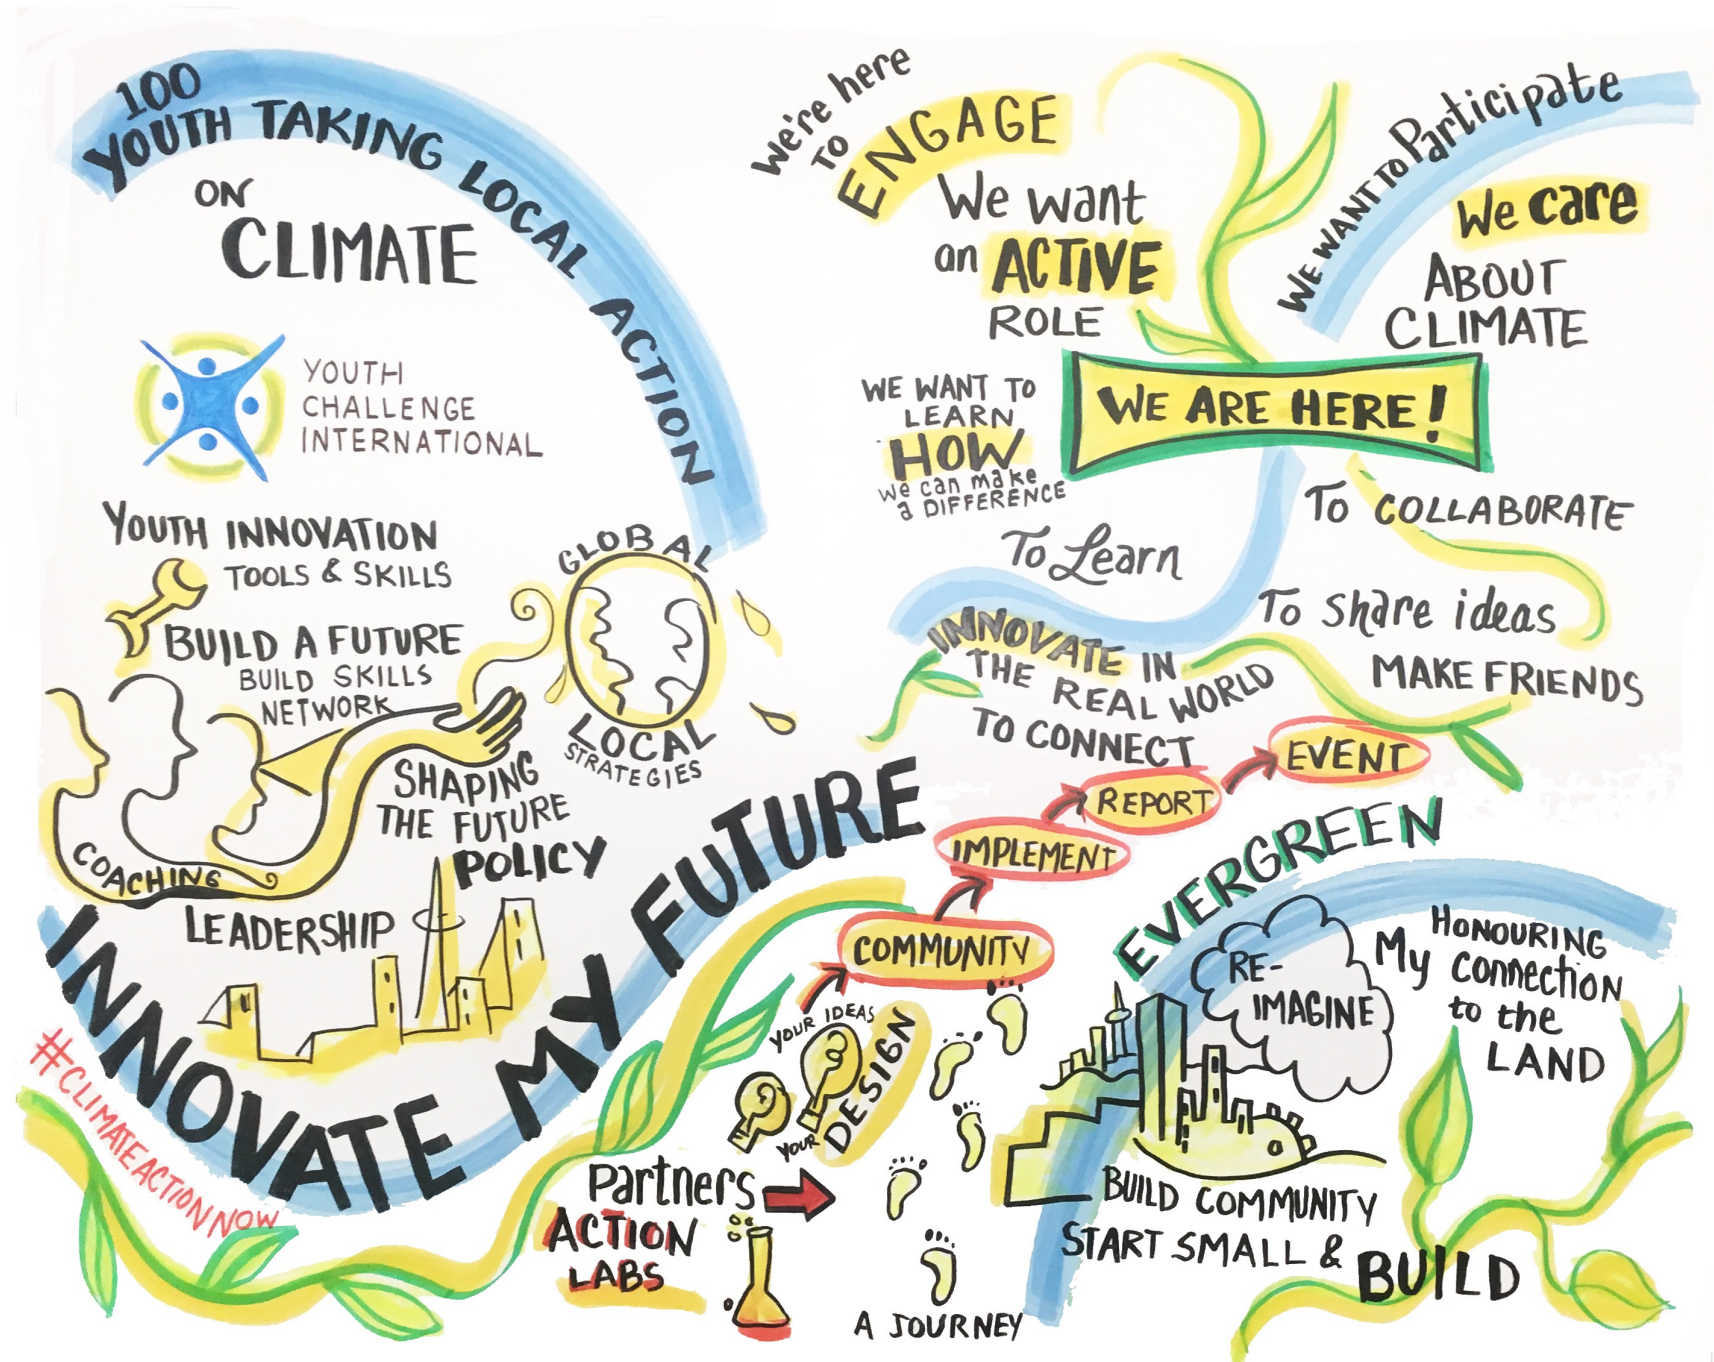 100
YOUTH TAKING LOCAL ACTION
ON
CLIMATE
YOUTH
CHALLENGE
INTERNATIONAL
YOUTH INNOVATION
TOOLS & SKILLS
BUILD A FUTURE
BUILD SKILLS
NETWORK
GLOBAL
LOCAL
STRATEGIES
SHAPING
THE FUTURE
POLICY
COACHING
LEADERSHIP
INNOVATE MY FUTURE
#CLIMATEACTIONNOW
We're here
TO
ENGAGE
We want
an ACTIVE
ROLE
WE WANT TO Participate
We care
ABOUT
CLIMATE
WE ARE HERE!
WE WANT TO
LEARN
HOW
we can make
a DIFFERENCE
To Learn
To COLLABORATE
To share ideas
MAKE FRIENDS
INNOVATE IN
THE REAL WORLD
TO CONNECT
EVENT
REPORT
IMPLEMENT
COMMUNITY
YOUR IDEAS
YOUR
DESIGN
Partners
ACTION
LABS
A JOURNEY
EVERGREEN
RE-
IMAGINE
HONOURING
My connection
to the
LAND
BUILD COMMUNITY
START SMALL &
BUILD